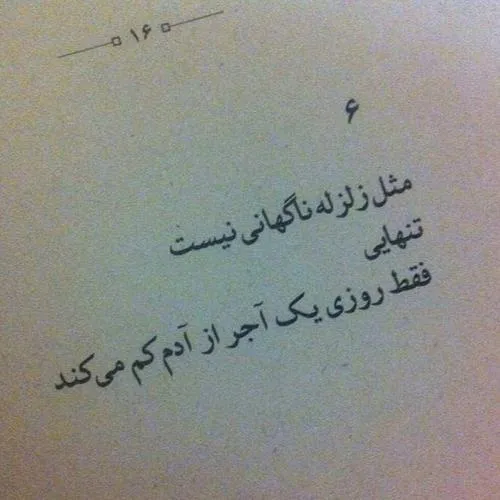 ۱۶
۶
مثل زلزله ناگهانی نیست
تنهایی
فقط روزی یک آجر از آدم کم می‌کند